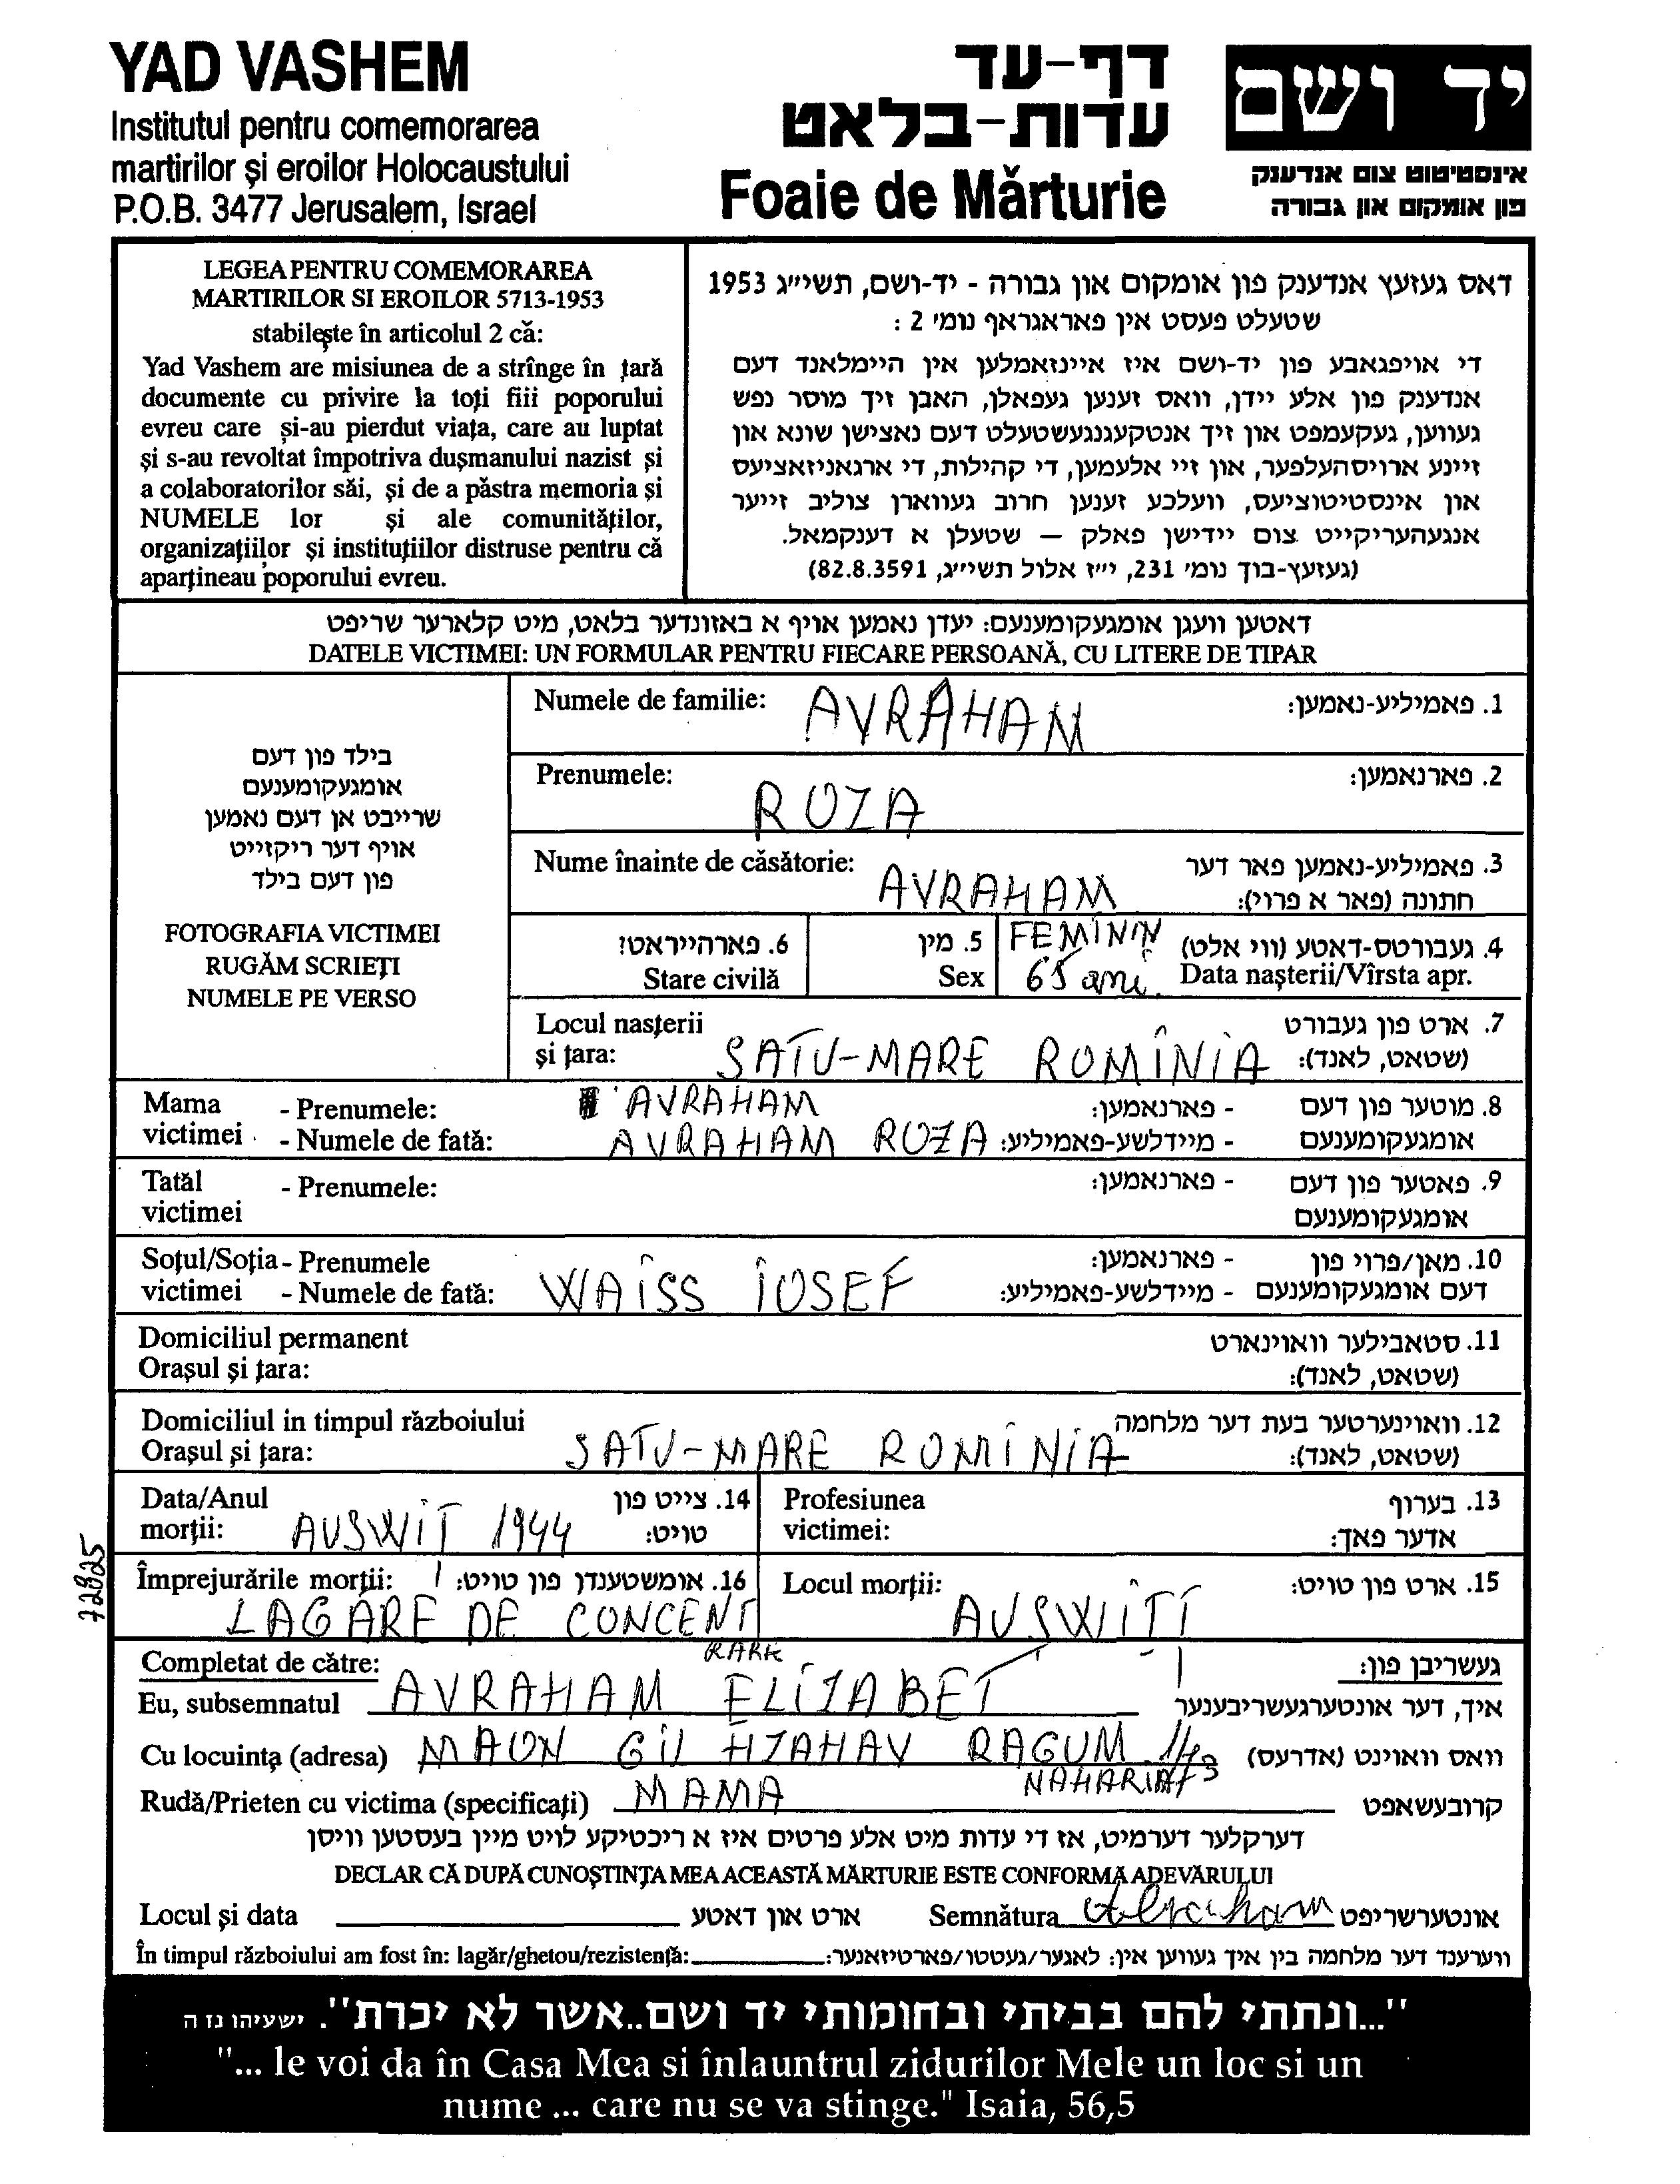 YAD VASHEM
Institutul pentru comemorarea
martirilor și eroilor Holocaustului
P.O.B. 3477 Jerusalem, Israel
דף-עד
עדות-בלאט
Foaie de Mărturie
יד ושם
אינסטיטוט צום אנדענק
פון אומקום און גבורה
LEGEA PENTRU COMEMORAREA
MARTIRILOR SI EROILOR 5713-1953
stabilește în articolul 2 că:
Yad Vashem are misiunea de a strînge în țară
documente cu privire la toți fiii poporului
evreu care și-au pierdut viața, care au luptat
și s-au revoltat împotriva dușmanului nazist și
a colaboratorilor săi, și de a păstra memoria și
NUMELE lor și ale comunităților,
organizațiilor și instituțiilor distruse pentru că
aparțineau poporului evreu.
דאס געזעץ אנדענק פון אומקום און גבורה - יד-ושם, תשי״ג 1953
שטעלט פעסט אין פאראגראף נומ׳ 2 :
די אויפגאבע פון יד-ושם איז איינזאמלען אין היימלאנד דעם
אנדענק פון אלע יידן, וואס זענען געפאלן, האבן זיך מוסר נפש
געווען, געקעמפט און זיך אנטקעגנגעשטעלט דעם נאצישן שונא און
זיינע ארויסהעלפער, און זיי אלעמען, די קהילות, די ארגאניזאציעס
און אינסטיטוציעס, וועלכע זענען חרוב געווארן צוליב זייער
אנגעהעריקייט צום יידישן פאלק — שטעלן א דענקמאל.
(געזעץ-בוך נומ׳ 231, י״ז אלול תשי״ג, 82.8.3591)
דאטען וועגן אומגעקומענעם: יעדן נאמען אויף א באזונדער בלאט, מיט קלארער שריפט
DATELE VICTIMEI: UN FORMULAR PENTRU FIECARE PERSOANĂ, CU LITERE DE TIPAR
בילד פון דעם
אומגעקומענעם
שרייבט אן דעם נאמען
אויף דער ריקזייט
פון דעם בילד
FOTOGRAFIA VICTIMEI
RUGĂM SCRIEȚI
NUMELE PE VERSO
Numele de familie: AVRAHAM 1. פאמיליע-נאמען:
Prenumele: ROZA 2. פארנאמען:
Nume înainte de căsătorie: AVRAHAM 3. פאמיליע-נאמען פאר דער
חתונה (פאר א פרוי):
6. פארהייראט? 5. מין FEMININ 4. געבורטס-דאטע (ווי אלט)
Stare civilă Sex 65 ani Data nașterii/Vîrsta apr.
Locul nașterii 7. ארט פון געבורט
și țara: SATU-MARE ROMÎNIA (שטאט, לאנד):
Mama - Prenumele: AVRAHAM - פארנאמען: 8. מוטער פון דעם
victimei - Numele de fată: AVRAHAM ROZA - מיידלשע-פאמיליע: אומגעקומענעם
Tatăl - Prenumele: - פארנאמען: 9. פאטער פון דעם
victimei אומגעקומענעם
Soțul/Soția - Prenumele - פארנאמען: 10. מאן/פרוי פון
victimei - Numele de fată: WAISS IOSEF - מיידלשע-פאמיליע: דעם אומגעקומענעם
Domiciliul permanent 11. סטאבילער וואוינארט
Orașul și țara: (שטאט, לאנד):
Domiciliul in timpul războiului 12. וואוינערטער בעת דער מלחמה
Orașul și țara: SATU-MARE ROMINIA (שטאט, לאנד):
Data/Anul 14. צייט פון Profesiunea 13. בערוף
morții: AUSWIT 1944 טויט: victimei: אדער פאך:
Împrejurările morții: 16. אומשטענדן פון טויט: Locul morții: 15. ארט פון טויט:
LAGĂRE DE CONCENT AUSWITT
RARE
72825
Completat de către: געשריבן פון:
Eu, subsemnatul AVRAHAM ELIZABET איך, דער אונטערגעשריבענער
Cu locuința (adresa) MAON GIL HZAHAV RAGUM 1/43 וואס וואוינט (אדרעס)
NAHARIA
Rudă/Prieten cu victima (specificați) MAMA קרובעשאפט
דערקלער דערמיט, אז די עדות מיט אלע פרטים איז א ריכטיקע לויט מיין בעסטען וויסן
DECLAR CĂ DUPĂ CUNOȘTINȚA MEA ACEASTĂ MĂRTURIE ESTE CONFORMĂ ADEVĂRULUI
Locul și data ארט און דאטע Semnătura Avraham אונטערשריפט
În timpul războiului am fost în: lagăr/ghetou/rezistență: ווערענד דער מלחמה בין איך געווען אין: לאגער/געטטו/פארטיזאנער:
"...ונתתי להם בביתי ובחומותי יד ושם..אשר לא יכרת". ישעיהו נז ה
"... le voi da în Casa Mea si înlauntrul zidurilor Mele un loc si un
nume ... care nu se va stinge." Isaia, 56,5